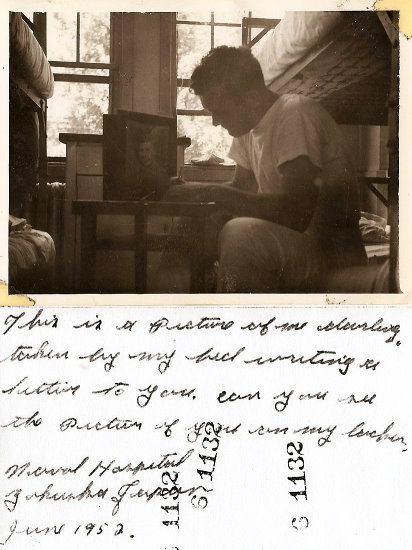 This is a Picture of me darling,
taken by my bed writing a
letter to you. can you see
the Picture of you on my locker,
Naval Hospital
Yokuska Japan
June 1952.
1132
6 1132
6 1132